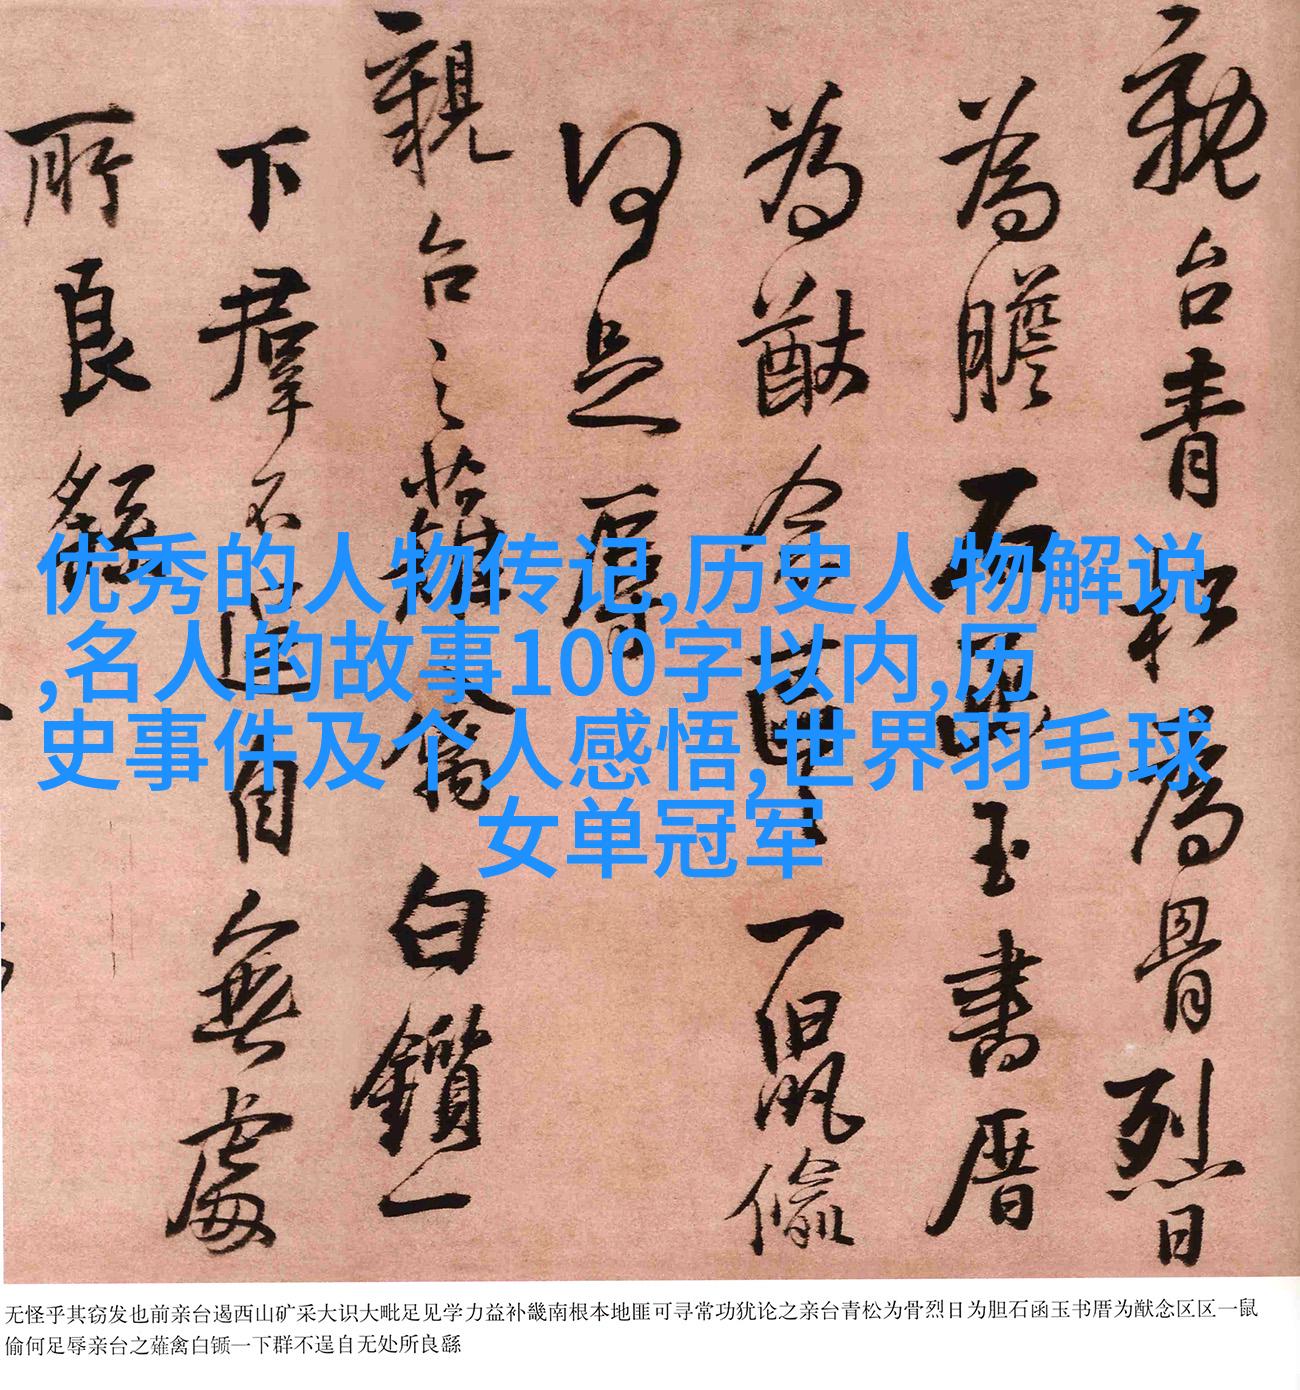 親台青松為骨烈日
為膽石函玉書曆
為猷念區區一鼠偷
何足辱
親台之薙禽白鑕一
下群不逞自無處
所良繇
优秀的人物传记,历史人物解说
,名人的故事100字以内,历
史事件及个人感悟,世界羽毛球
女单冠军
无怪乎其窃发也前亲台遏西山矿采大识大毗足见学力益补畿南根本地匪可寻常功犹论之亲台青松为骨烈日为胆石函玉书厝为猷念区区一鼠
偷何足辱亲台之薙禽白锧一下群不逞自无处所良繇